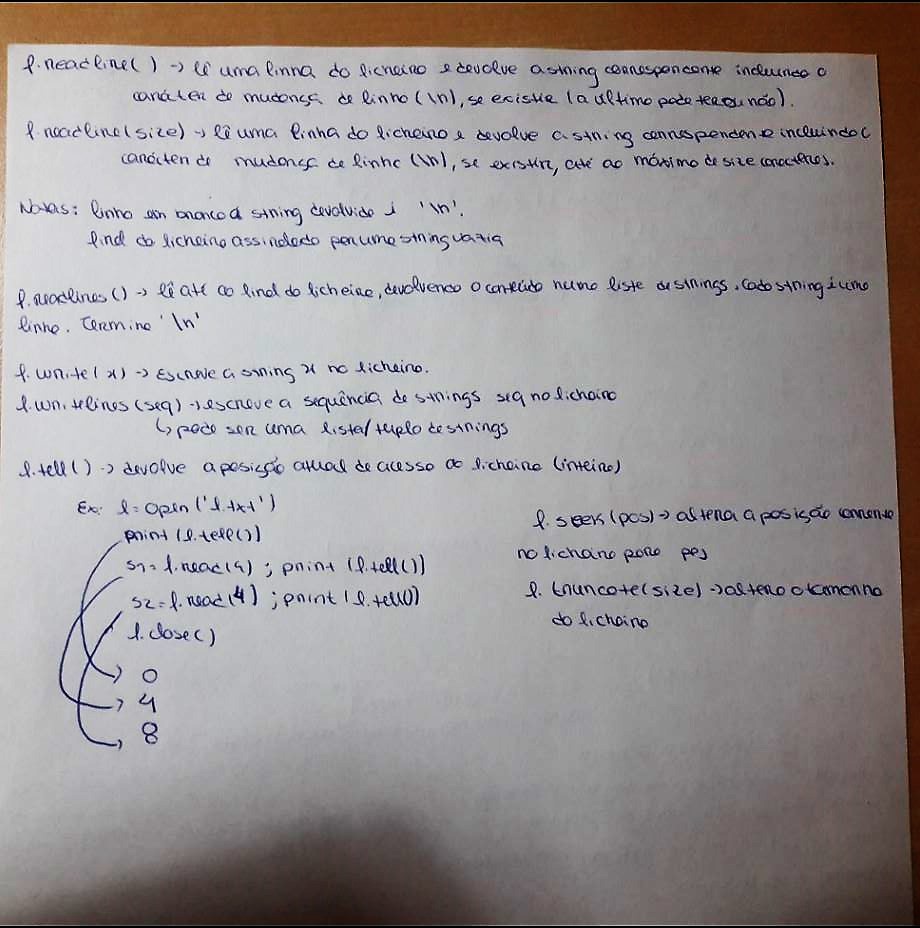 f.readline() -> lê uma linha do ficheiro e devolve a string correspondente incluindo o
carácter de mudança de linha (\n), se existir (a última pode ter ou não).
f.readline(size) -> lê uma linha do ficheiro e devolve a string correspondente incluindo
carácter de mudança de linha (\n), se existir, até ao máximo de size caracteres.
Notas: linha em branco a string devolvida é '\n'.
final do ficheiro assinalado por uma string vazia
f.readlines() -> lê até ao final do ficheiro, devolvendo o conteúdo numa lista de strings. Cada string é uma
linha. Termina '\n'
f.write(x) -> Escreve a string x no ficheiro.
f.writelines(seq) -> escreve a sequência de strings seq no ficheiro
↳ pode ser uma lista/tuplo de strings
f.tell() -> devolve a posição atual de acesso ao ficheiro (inteiro)
Ex: f=open('f.txt')
print(f.tell())
s1=f.read(4) ; print(f.tell())
s2=f.read(4) ; print(f.tell())
f.close()
0
4
8
f. seek(pos) -> altera a posição corrente
no ficheiro para pos
f. truncate(size) -> altera o tamanho
do ficheiro